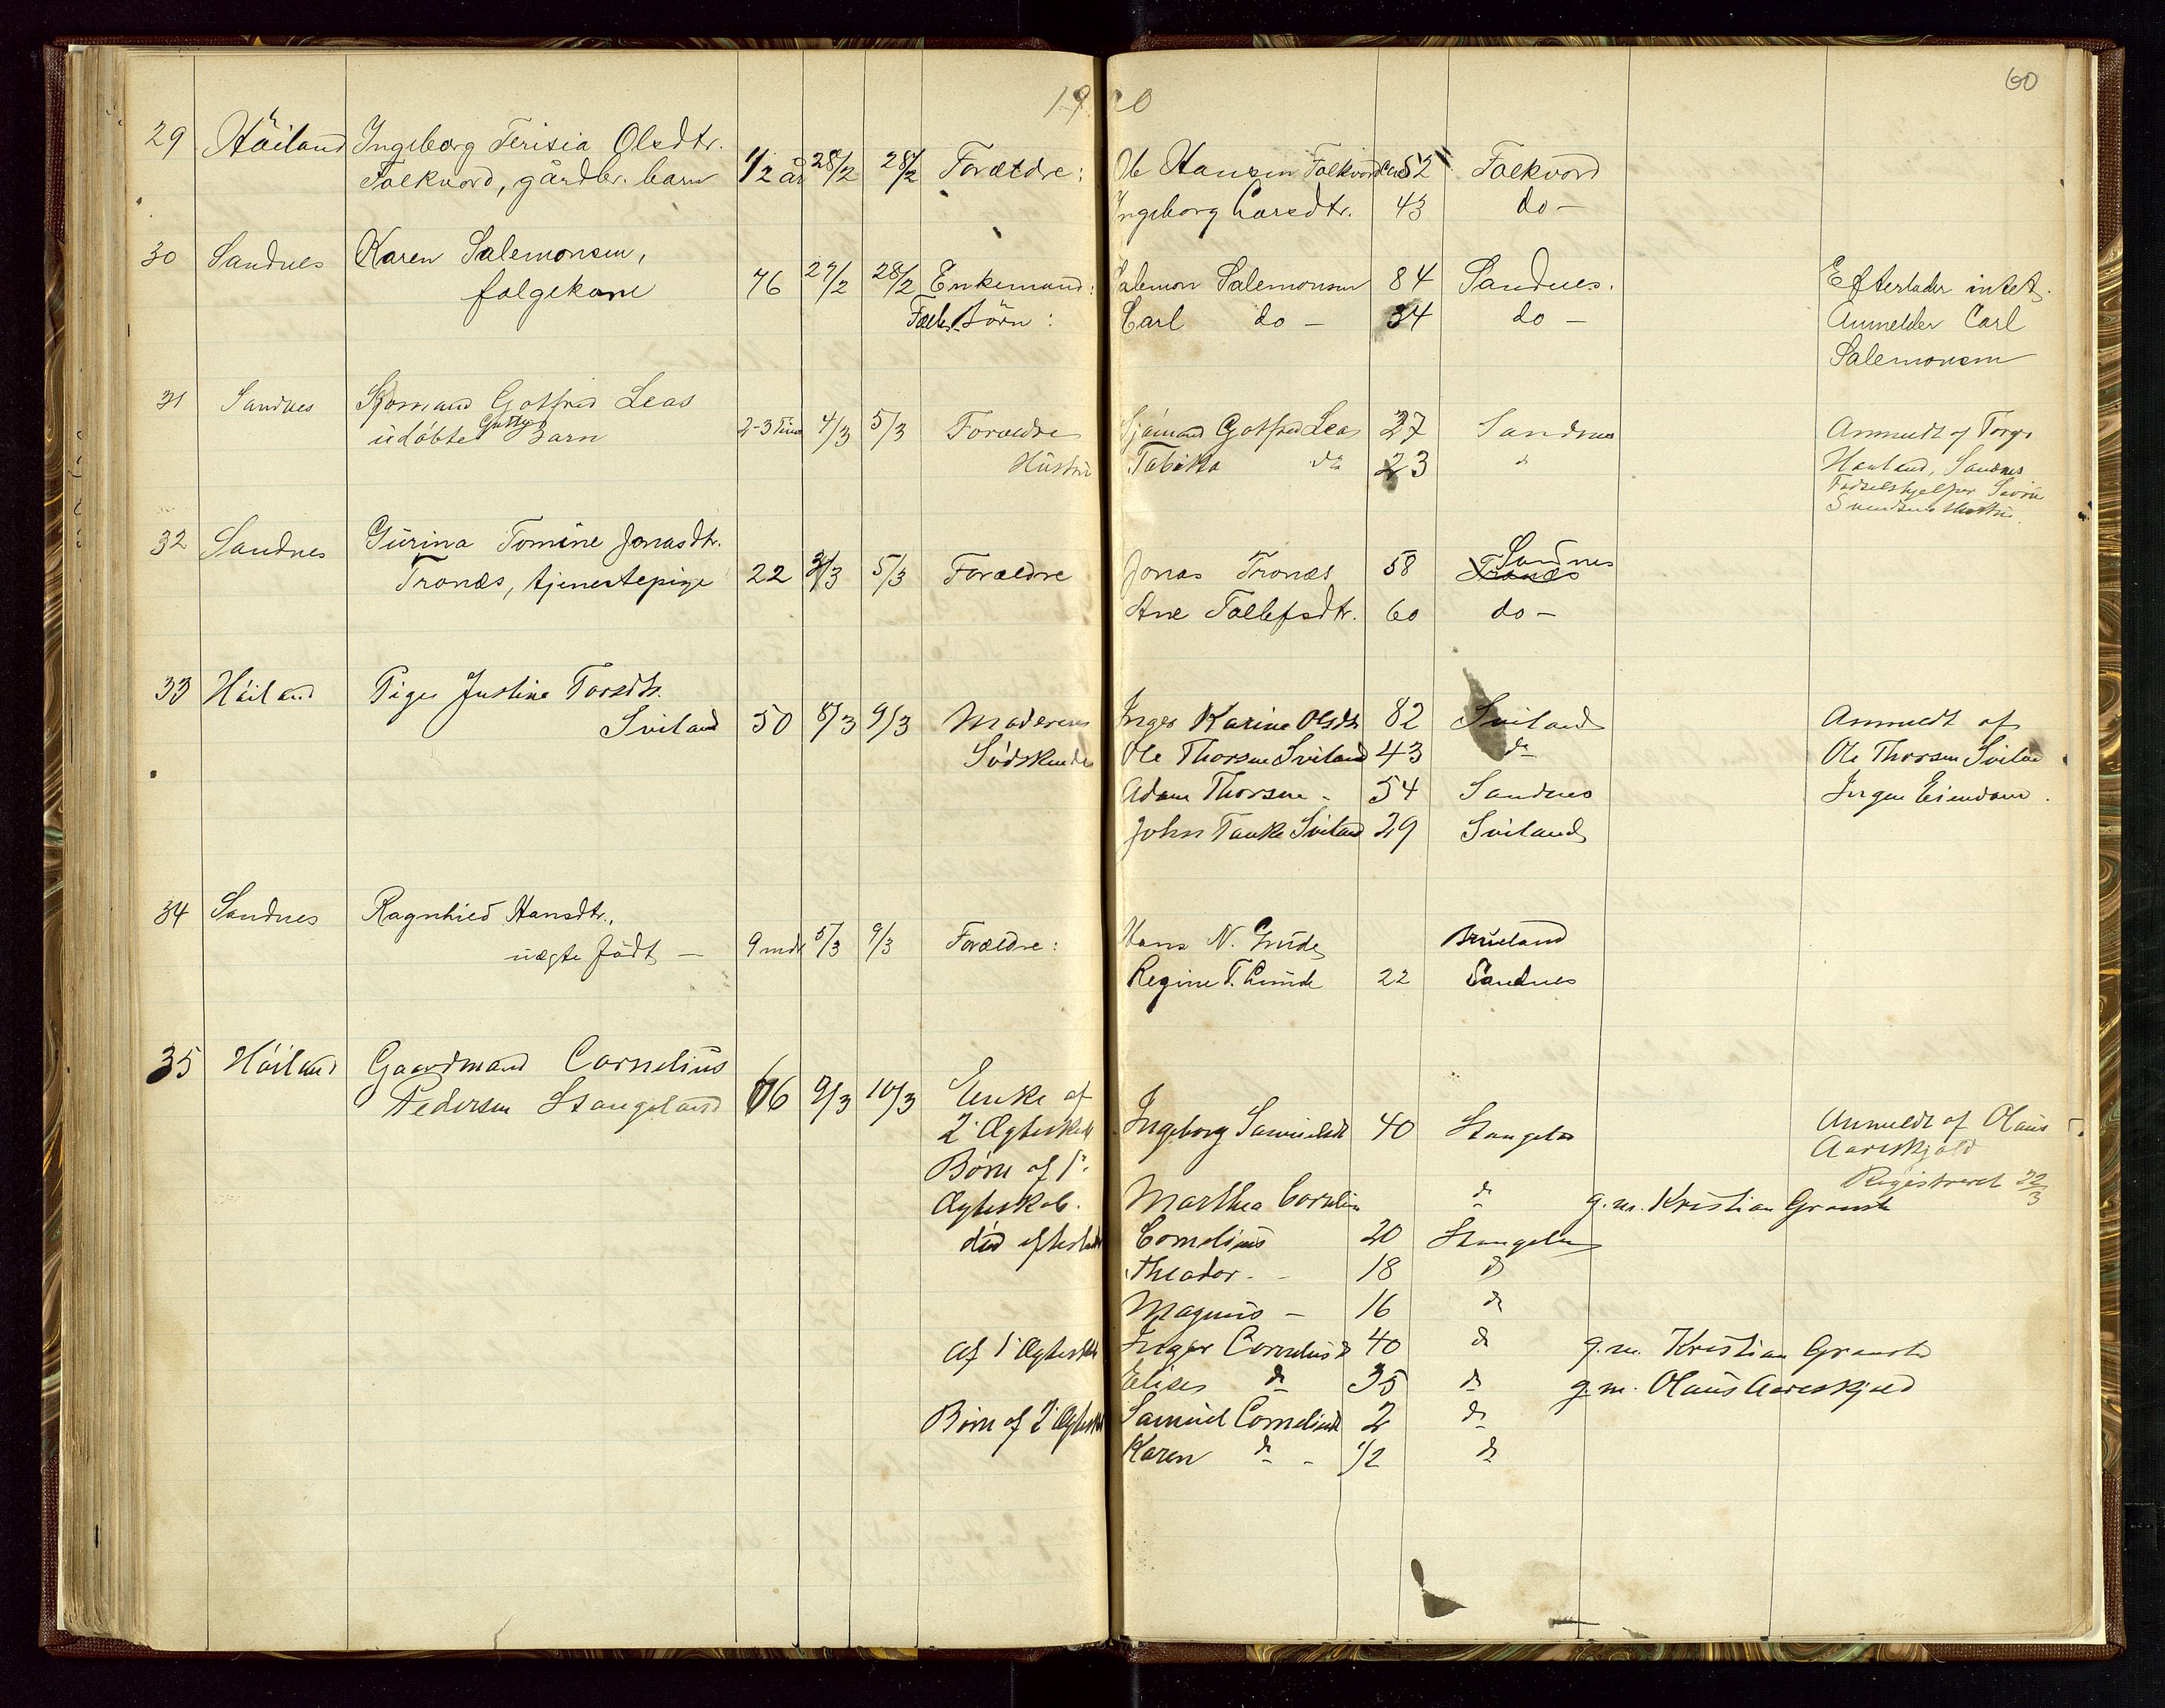 1900
60
29 Höiland Ingeborg Terisia Olsdtr. Folkvord, gårdbr. barn 1/2 år 28/2 28/2 Forældre: Ole Hansen Folkvord 52 Folkvord
Ingeborg Larsdtr. 43 do -
30 Sandnes Karen Salemonsen, folgekone 76 27/2 28/2 Enkemand: Salemon Salemonsen 84 Sandnes. Efterlader intet.
Børn: Carl do - 34 do - Anmelder Carl
Salemonsen
31 Sandnes Sjömand Gotfred Leas
udöbte Barn 2-3 Timer 4/3 5/3 Forældre Sjömand Gotfred Leas 27 Sandnes Anmeldt af
Hustru Tabitha do 23 do Sandnes
Svendsens Hustru
32 Sandnes Gurina Tomine Jonasdtr. Sandnes
Tronæs, tjenestepige 22 3/3 5/3 Forældre Jonas Tronæs 58 Tronæs
Ane Tollefsdtr. 60 do -
33 Höiland Pige Justine Torsdtr.
Sviland 50 8/3 9/3 Moderen Inger Karine Olsdtr 82 Sviland Anmeldt af
Södskende Ole Thorsen Sviland 43 do Ole Thorsen Sviland
Adam Thorsen - 54 Sandnes Ingen Eiendom.
John Tanke Sviland 29 Sviland
34 Sandnes Ragnhild Hansdtr.,
uægte födt - 9 mdr 5/3 9/3 Forældre: Hans N. Grude Brueland
Regine T. Lunde 22 Sandnes
35 Höiland Gaardmand Cornelius
Pedersen Stangeland 66 9/3 10/3 Enke af
2' Ægteskab Ingeborg Samuelsdtr 40 Stangeland Anmeldt af Olaus
Börn af 1' Aareskjold
Registreret 22/3
Ægteskab. Marthea Cornelius do g.m. Kristian Gramstad
Cornelius 20 Stangeland
Theodor - 18 do
Magnus - 16 do
Af 1' Ægteskab Inger Cornelius 40 do g.m. Kristian Gramstad
Elise do 35 do g.m. Olaus Aareskjold
Börn af 2' Ægteskab Samuel Cornelius 2 do
Karen do - 1/2 do